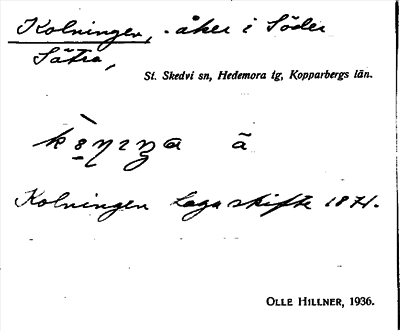 Kolningen, åker i Söder
Sätra,
St. Skedvi sn, Hedemora tg, Kopparbergs län.
ā
Kolningen Laga skifte 1871.
OLLE HILLNER, 1936.